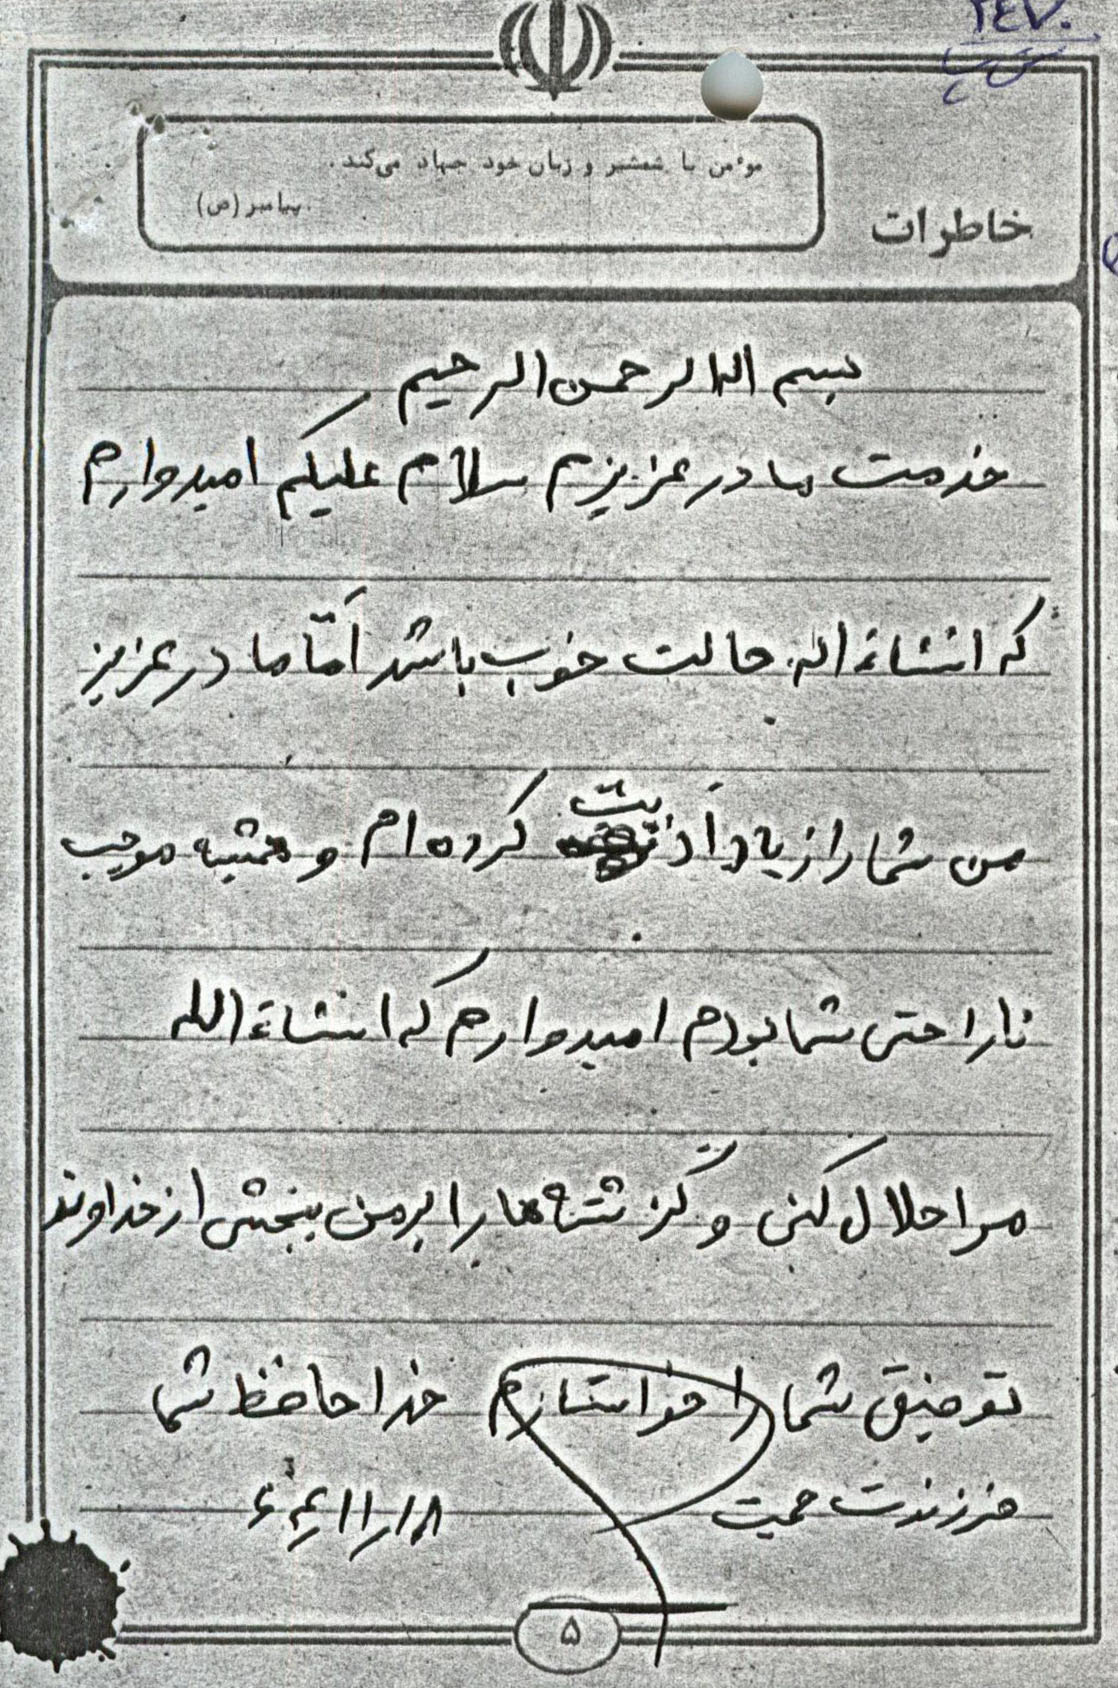 ۲٤۷۰
مؤمن با شمشیر و زبان خود جهاد می‌کند.
پیامبر (ص)
خاطرات
بسم الله الرحمن الرحیم
خدمت مادر عزیزم سلام علیکم امیدوارم
که انشاءالله حالت خوب باشد امّا مادر عزیز
من شما را زیاد اذیت کرده ام و همیشه موجب
ناراحتی شما بودم امیدوارم که انشاءالله
مرا حلال کنی و گذشته ها را بر من ببخشی از خداوند
توفیق شما را خواستارم خدا حافظ شما
فرزندت حمیت
۵